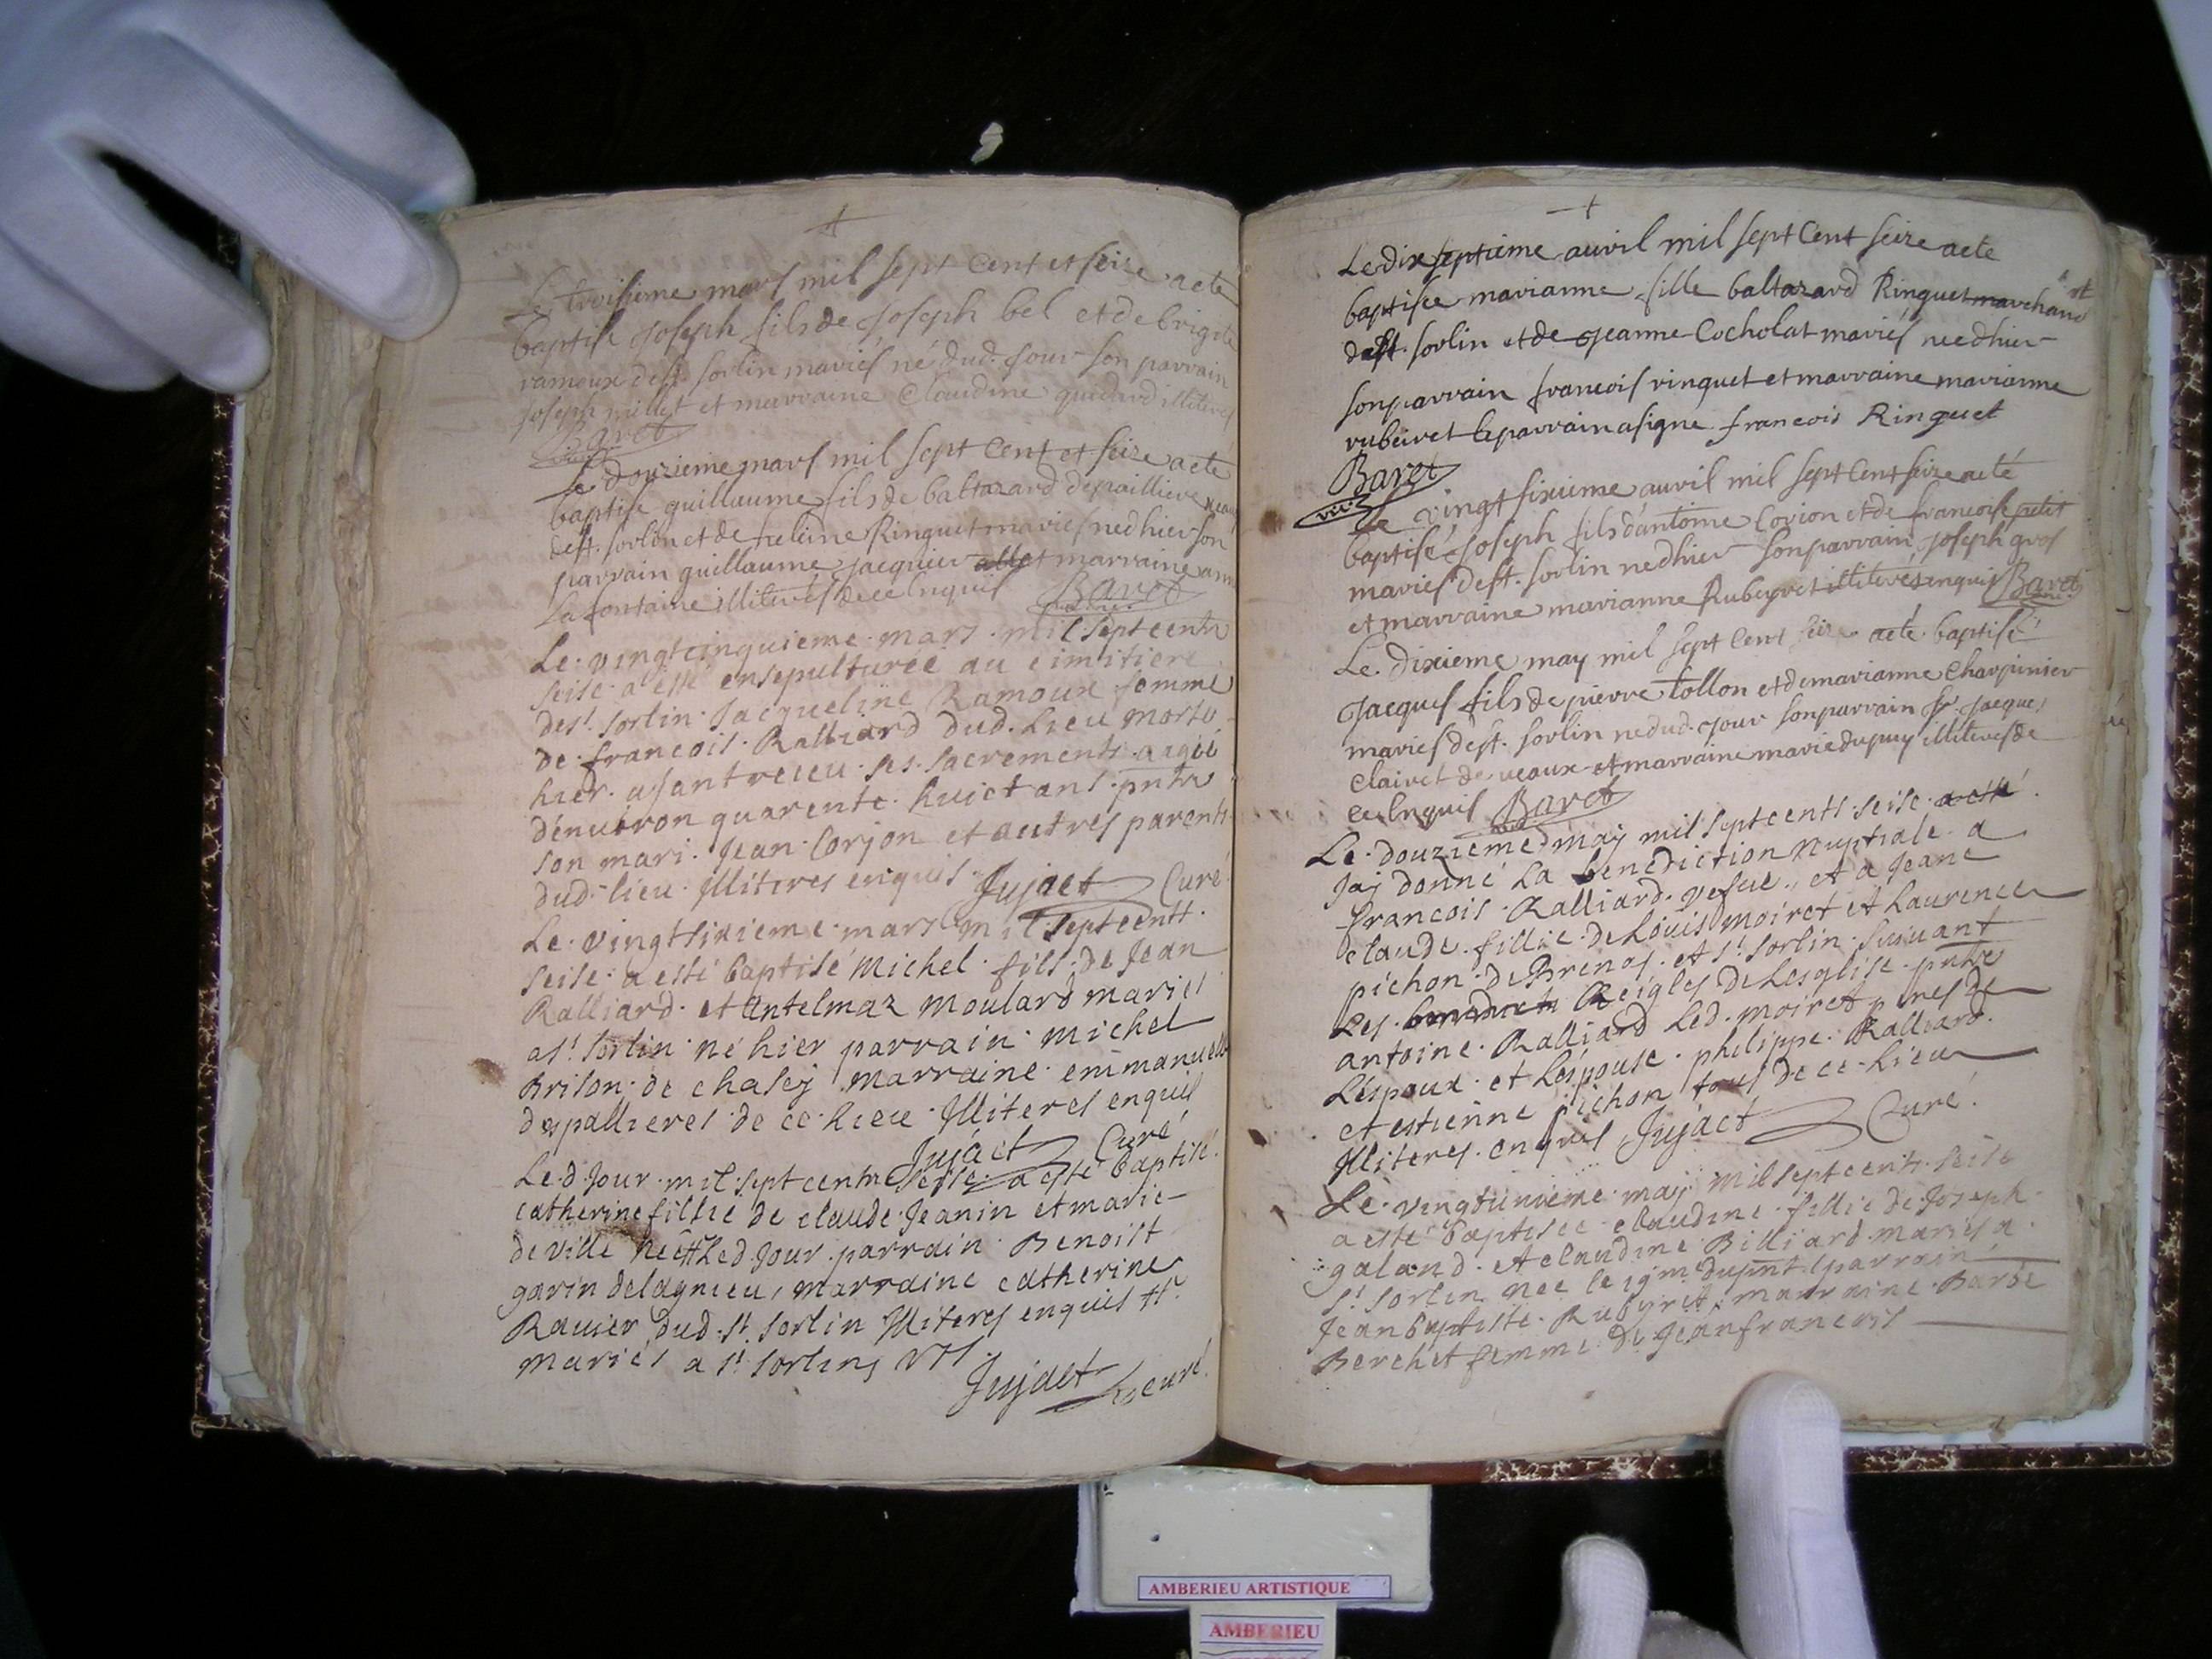 Le troisieme mars mil sept cent et seize a ete
baptisé Joseph fils de Joseph bel et de brigite
ramoux de st. sorlin mariés né dud. jour son parrain
Joseph millet et marraine Claudine guichard illiteres
Baret
Le douzieme mars mil sept cent et seize a ete
baptise guillaume fils de baltazard depailliere
de st. sorlin et de Ringuet mariés né dhier son
parrain guillaume jacquier et marraine anne
La fontaine illiterés de ce enquis Baret
Le vingtcinquieme mars mil septcents
seise a esté ensepulturée au cimitiere
de st. sorlin Jacqueline Ramoux femme
de francois Ralliard dud. Lieu morte
hier ayant receu ses sacrements agée
dénuiron quarente huict ans pnts
son mari Jean Corjon et autres parents
dud. lieu Illiteres enquis Jujact Curé
Le vingtsixieme mars mil septcents
seise a esté baptisé Michel fils de Jean
Ralliard et Antelmaz Moulard mariés
a st. sorlin né hier parrain Michel
Brison de chasey marraine emmanuelle
despallieres de ce Lieu Illiteres enquis
Jujact Curé
Le d. Jour mil sept cents seise a esté baptisé
catherine fillie de claude Jeanin et marie
de ville née Led. Jour parrain Benoist
garin delagnieu, marraine catherine
Rauier dud. st. sorlin Illiteres enquis
mariés a st. sorlin
Jujact Curé
Le dix septieme auvil mil sept Cent seize a ete
baptisée marianne fille baltazard Ringuet marchand
de st. sorlin et de Jeanne Cocholat mariés née dhier
son parrain francois ringuet et marraine marianne
rubeiret le parrain a signé francois Ringuet
Baret
Le vingt sixieme auvil mil sept Cent seize a eté
baptisé Joseph fils dantoine Corion et de francoise petit
mariés de st. sorlin né dhier son parrain Joseph gros
et marraine marianne Rubeyret illiterés enquis Baret
Le dixieme may mil sept Cent seize a eté baptisé
Jacques fils de pierre tollon et de marianne Charpinier
mariés de st. sorlin né dud. jour son parrain Sr. Jacques
Clairet de ueaux et marraine marie dupuy illiteres de
ce enquis Baret
Le douzieme may mil septcents seise a esté
Jaj donné La benediction nuptiale a
francois Ralliard vefue, et a Jeane
claude fillie de Louis moiret et Laurence
pichon de Brenas et st. sorlin suiuant
Les Reigles de Lesglise pnts
antoine Ralliard Led. moiret peres de
Lespoux et Lespouse philippe Ralliard
et estienne pichon tous de ce Lieu
Illiteres enquis Jujact Curé
Le vingtunieme may mil septcents seise
a esté baptisée claudine fillie de Joseph
galand et claudine Billiard mariés a
st. sorlin née le 19me dupnt parrain
Jean baptiste Rubyret marraine Barbe
Berchet femme de Jeanfrancois
AMBERIEU ARTISTIQUE
AMBERIEU